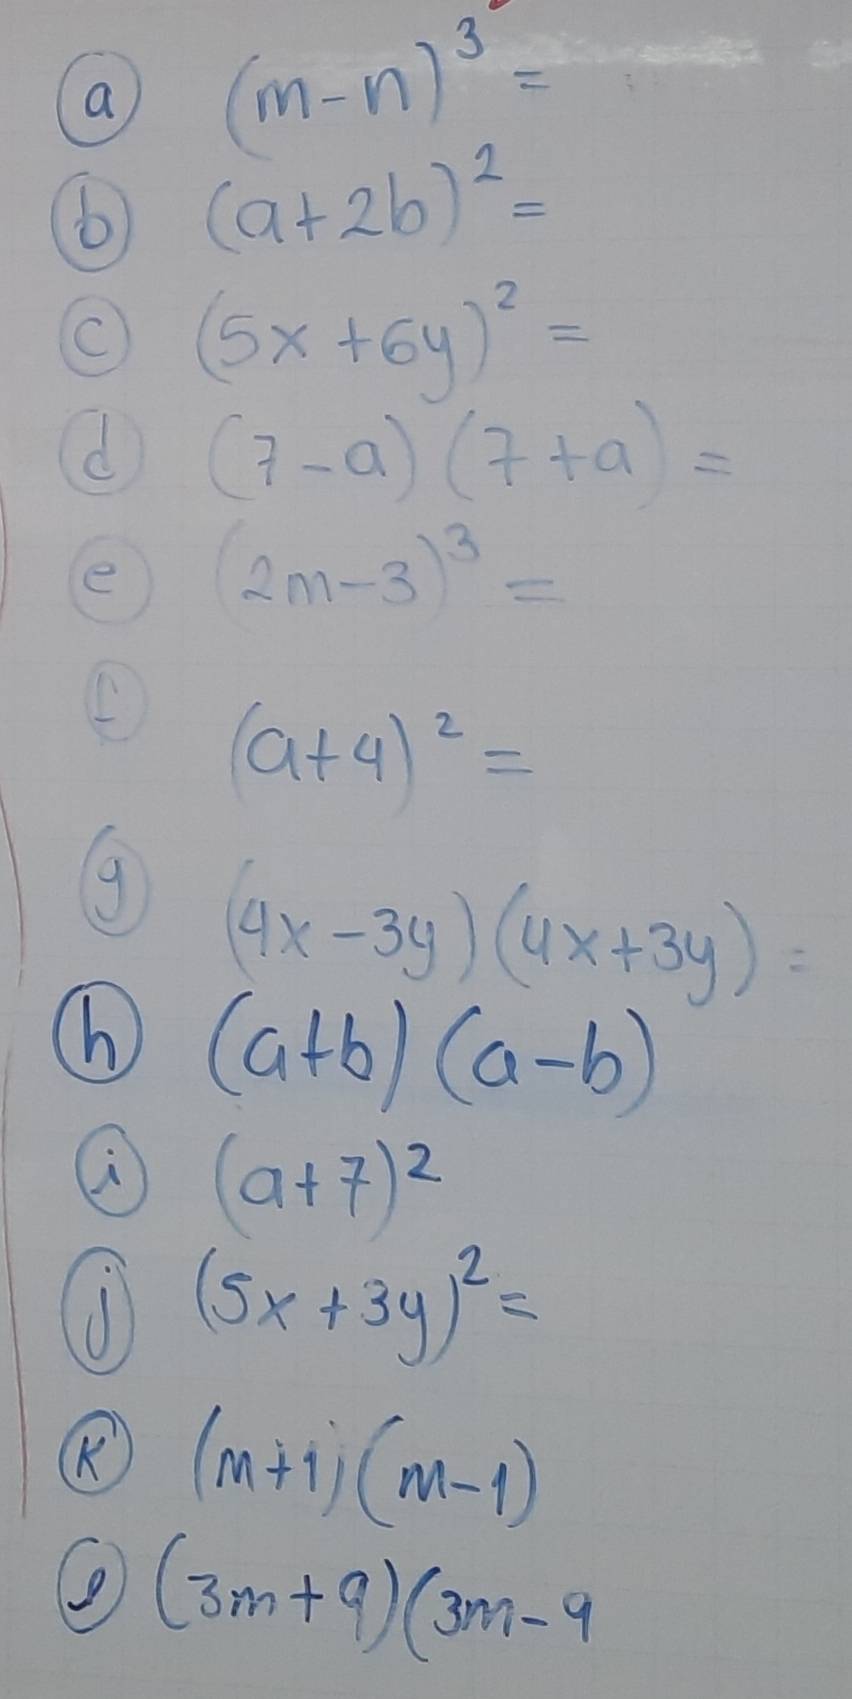 a (m-n)³ =
b (a+2b)² =
c (5x+6y)² =
d (7-a)(7+a) =
e (2m-3)³ =
f (a+4)² =
g (4x-3y)(4x+3y) =
h (a+b)(a-b)
i (a+7)²
j (5x+3y)² =
k (m+1)(m-1)
l (3m+9)(3m-9